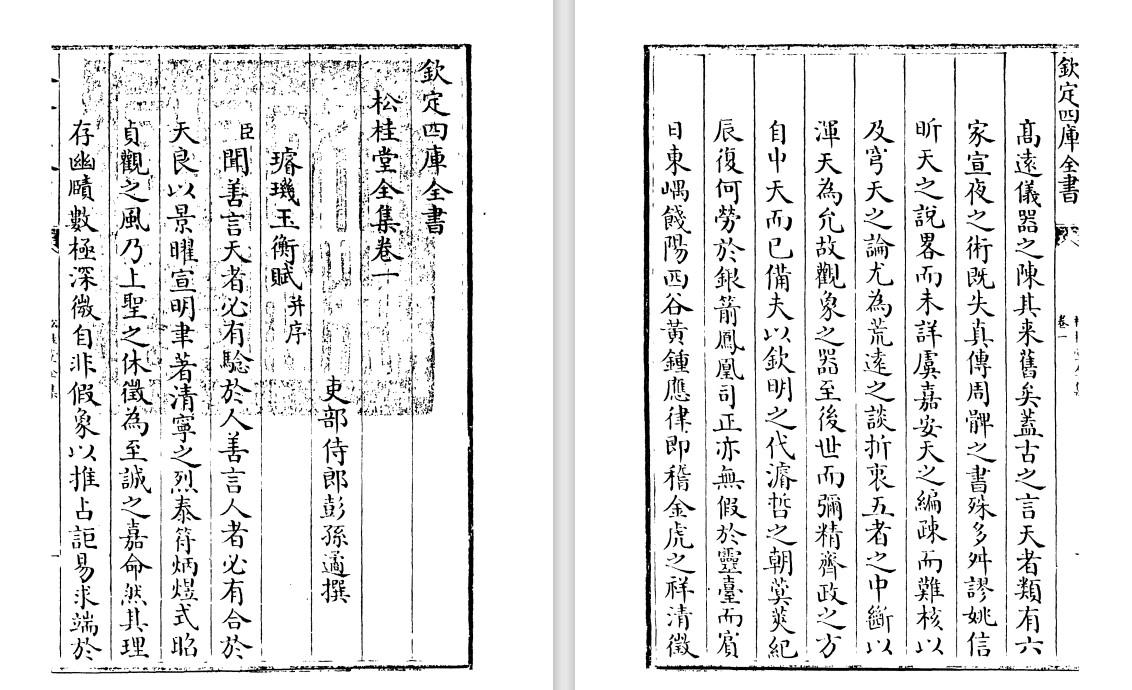 欽定四庫全書
松桂堂全集卷一
吏部侍郎彭孫遹撰
璿璣玉衡賦并序
臣聞善言天者必有驗於人善言人者必有合於
天良以景曜宣明聿著清寧之烈泰符炳煜式昭
貞觀之風乃上聖之休徵為至誠之嘉命然其理
存幽賾數極深微自非假象以推占詎易求端於
一
欽定四庫全書
卷一
高遠儀器之陳其来舊矣蓋古之言天者類有六
家宣夜之術既失真傳周髀之書殊多舛謬姚信
昕天之說畧而未詳虞嘉安天之編疎而難核以
及穹天之論尤為荒遠之談折衷五者之中斷以
渾天為允故觀象之器至後世而彌精齊政之方
自中天而已備夫以欽明之代濬哲之朝蓂莢紀
辰復何勞於銀箭鳳凰司正亦無假於靈臺而賔
日東嵎餞陽西谷黃鍾應律即稽金虎之祥清徵